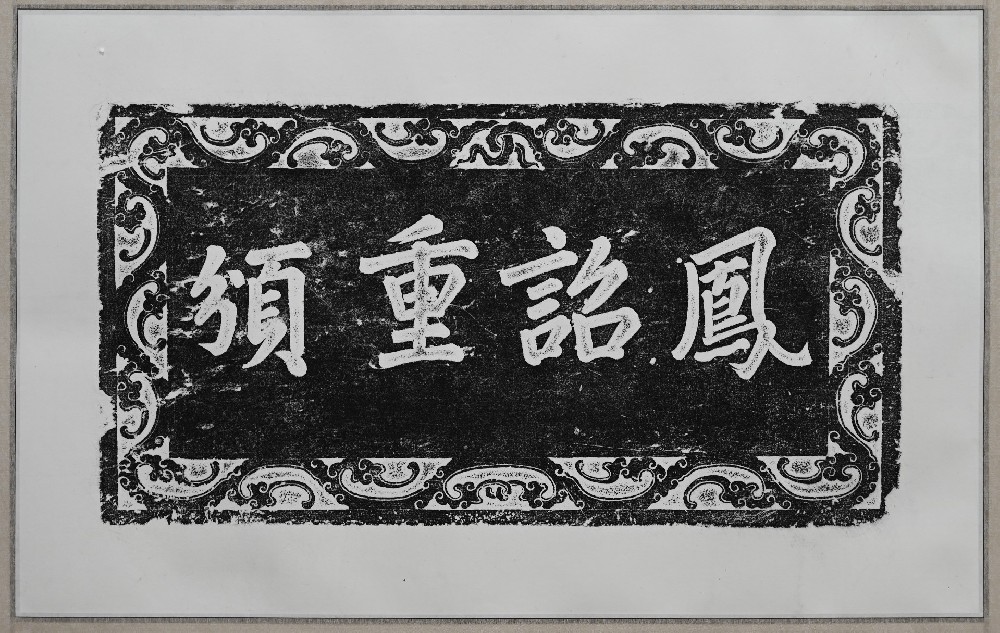 鳳詔重頒